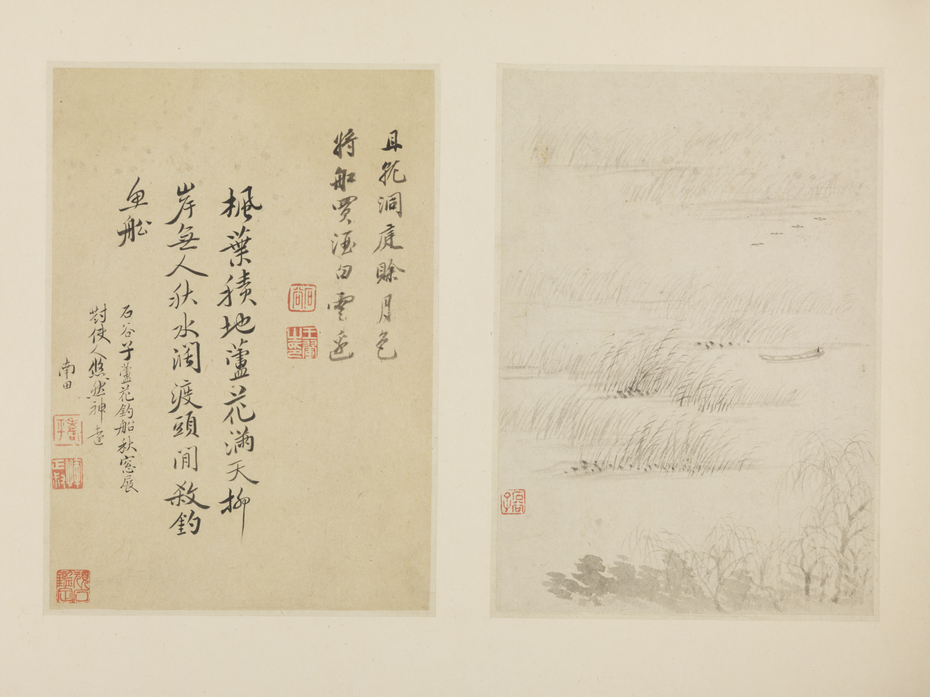 且就洞庭賒月色
將船買酒白雲邊
石谷
楓葉積地蘆花滿天柳
岸無人秋水闊渡頭閒殺釣
魚舩
石谷子蘆花釣船秋窓展
對使人悠然神遠
南田
壽平